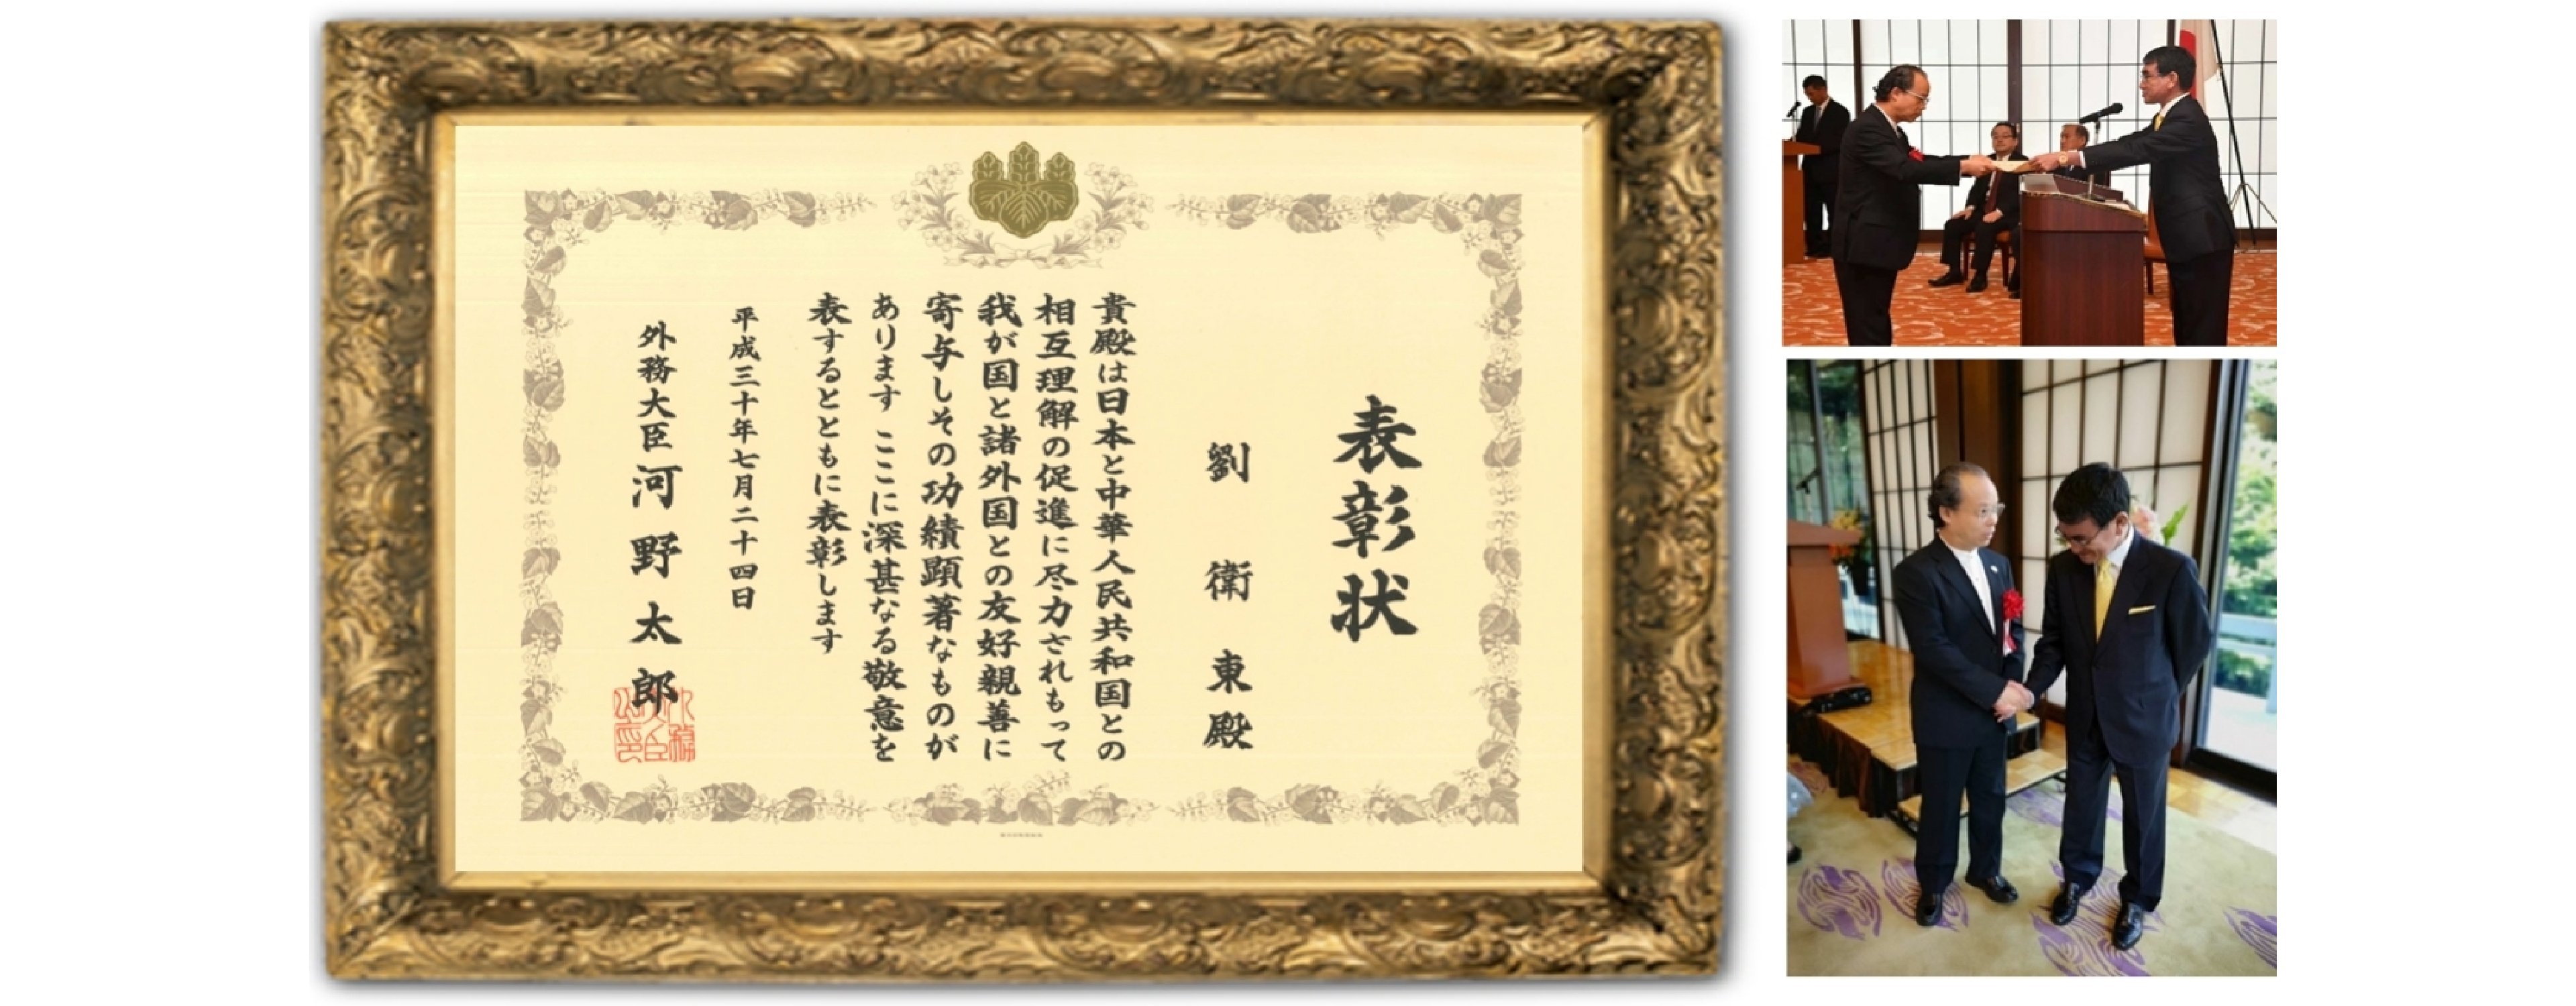 表彰状
劉衛東殿
貴殿は日本と中華人民共和国との
相互理解の促進に尽力されもって
我が国と諸外国との友好親善に
寄与しその功績顕著なものが
あります ここに深甚なる敬意を
表するとともに表彰します
平成三十年七月二十四日
外務大臣 河野太郎